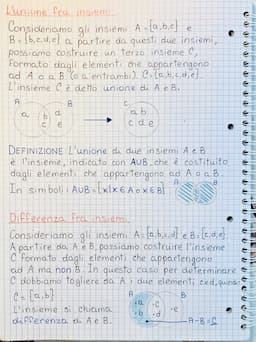 L'unione fra insiemi
Consideriamo gli insiemi A={a,b,c} e
B={b,c,d,e} a partire da questi due insiemi,
possiamo costruire un terzo insieme C,
formato dagli elementi che appartengono
ad A o a B (o a entrambi). C={a,b,c,d,e}
L'insieme C è detto unione di A e B.
A B C
a b c d e
a b
c d e
DEFINIZIONE: L'unione di due insiemi A e B
è l'insieme, indicato con AUB, che è costituito
dagli elementi che appartengono ad A o a B.
In simboli: AUB={x|x∈A o x∈B}
A B
Differenza fra insiemi
Consideriamo gli insiemi A={a,b,c,d} e B={c,d,e}.
A partire da A e B, possiamo costruire l'insieme
C formato dagli elementi che appartengono
ad A ma non B. In questo caso per determinare
C dobbiamo togliere da A i due elementi c ed, quindi
C={a,b}
L'insieme si chiama
differenza di A e B.
A B
•a •c •e
•b •d
A-B=C